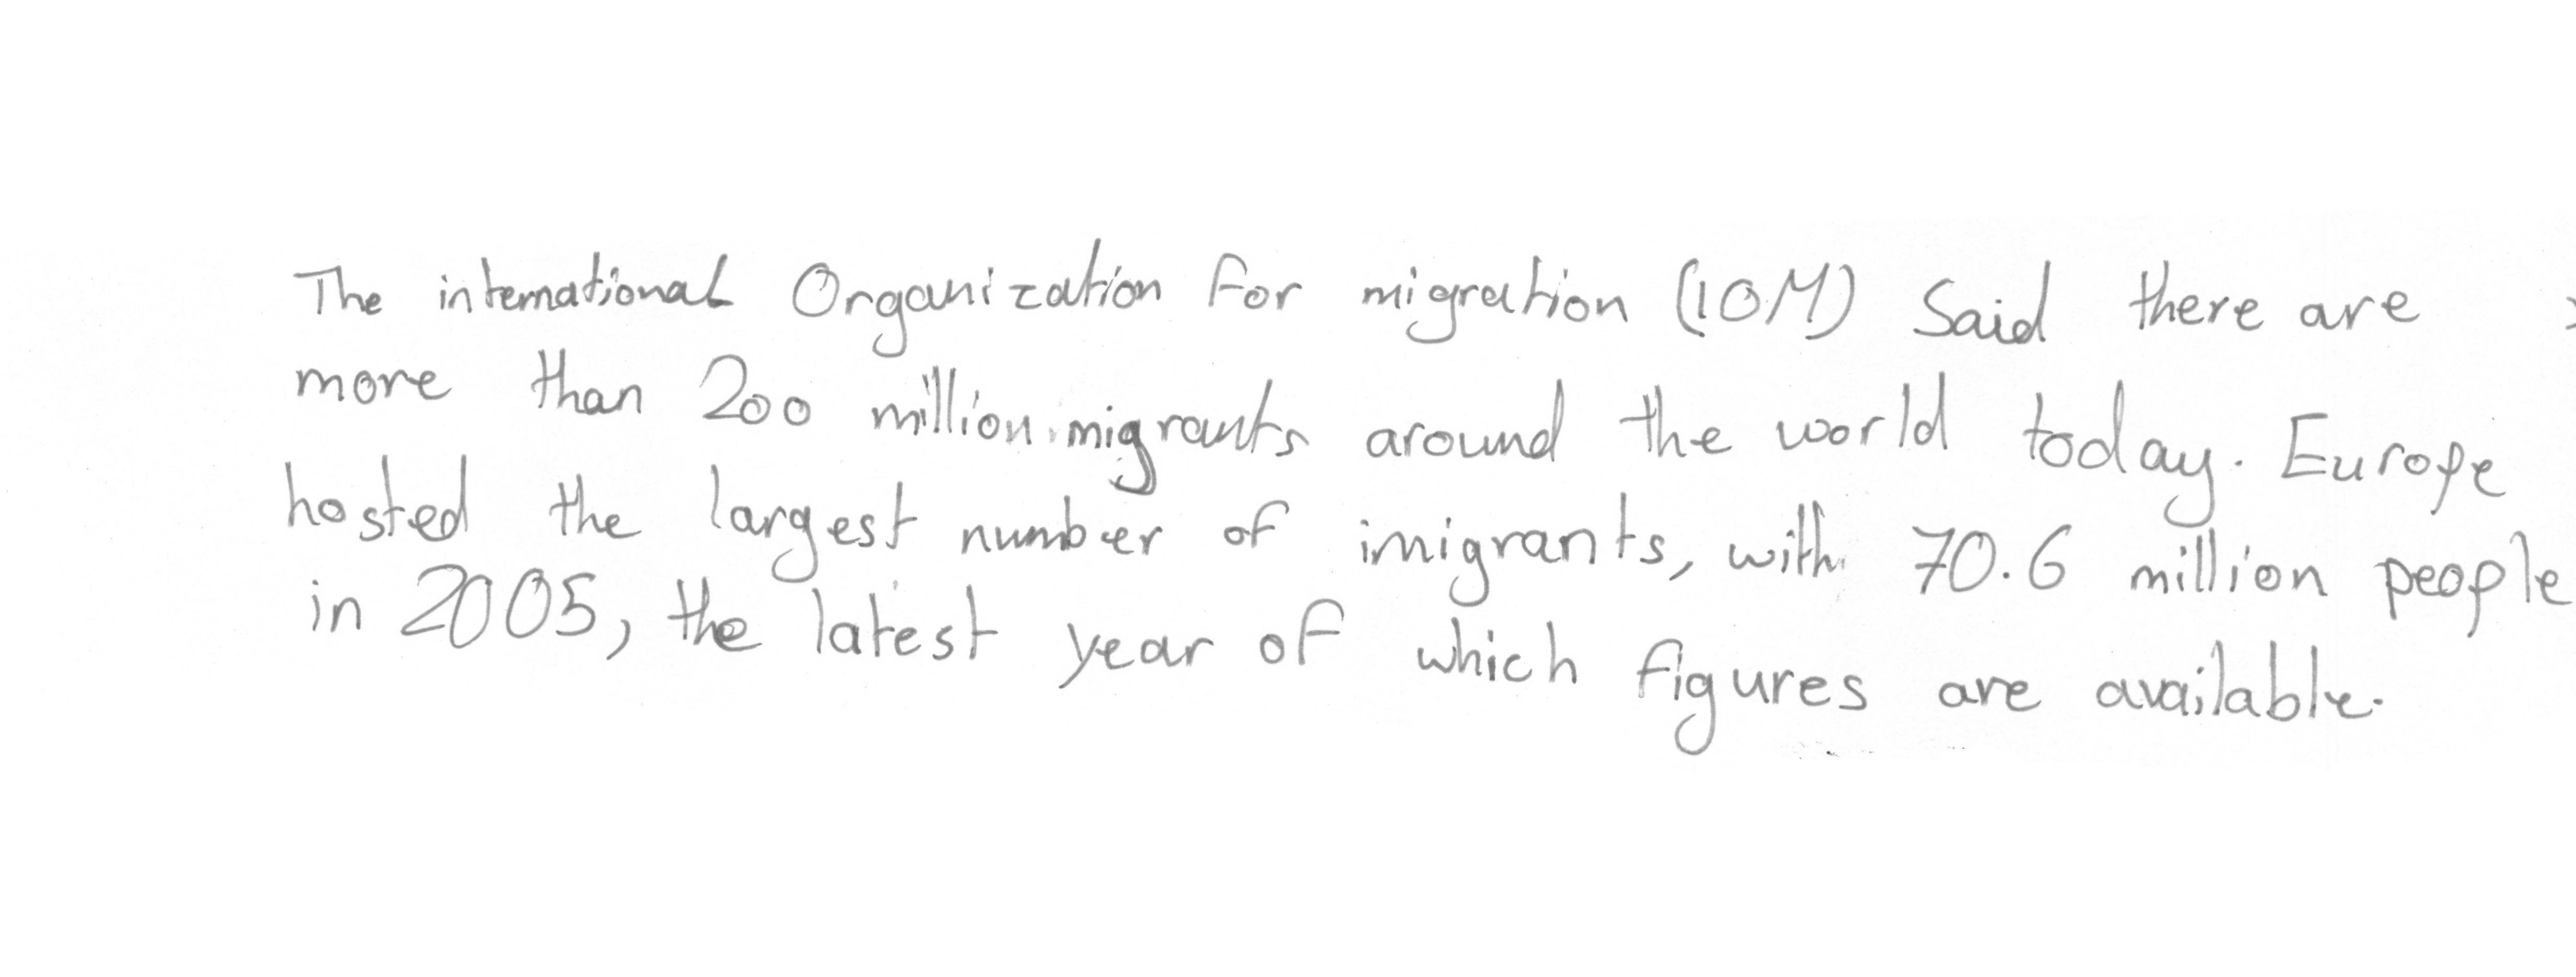 The international Organization for migration (IOM) Said there are
more than 200 million migrants around the world today. Europe
hosted the largest number of imigrants, with 70.6 million people
in 2005, the latest year of which figures are available.